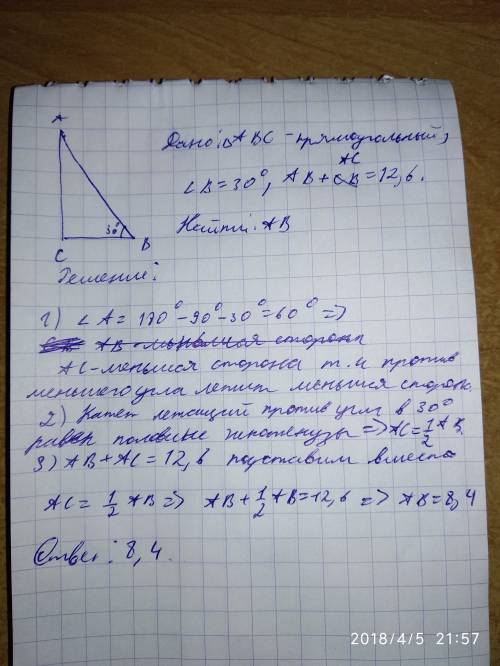 A
Дано: △ABC - прямоугольный,
∠B = 30°, AB + CB = 12,6.
AC
Найти: AB
30°
C
B
Решение:
1) ∠A = 180° - 90° - 30° = 60° =>
AB - меньшая сторона
AC - меньшая сторона т.к против
меньшего угла лежит меньшая сторона.
2) Катет лежащий против угла в 30°
равен половине гипотенузы => AC = 1/2 AB.
3) AB + AC = 12,6 подставим вместо
AC = 1/2 AB => AB + 1/2 AB = 12,6 => AB = 8,4
Ответ: 8,4.
2018/4/5 21:57